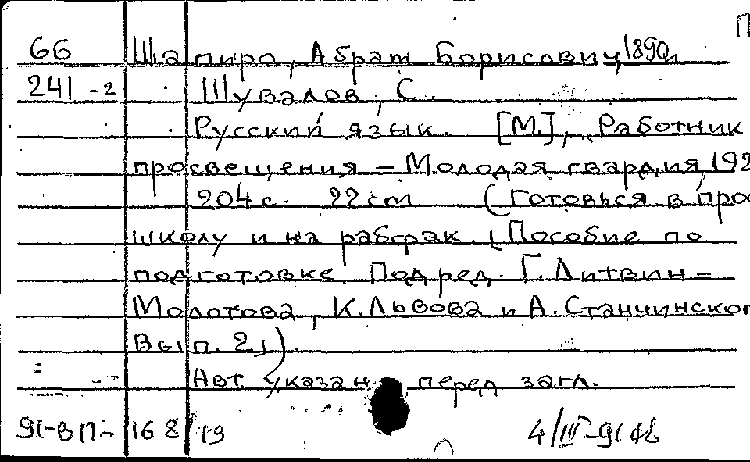 66 Шапиро, Абрам Борисович, 1890-
241-2 Шувалов, С.
Русский язык. [М.], Работник
просвещения – Молодая гвардия, 192
204 с. 22 cm (Готовься в про
школу и на рабфак. [Пособие по
подготовке. Под ред. Г. Литвин-
Молотова, К. Львова и А. Станчинског
Вып. 2])
Авт. указан перед загл.
91-ВП- 168/19 4/III-91